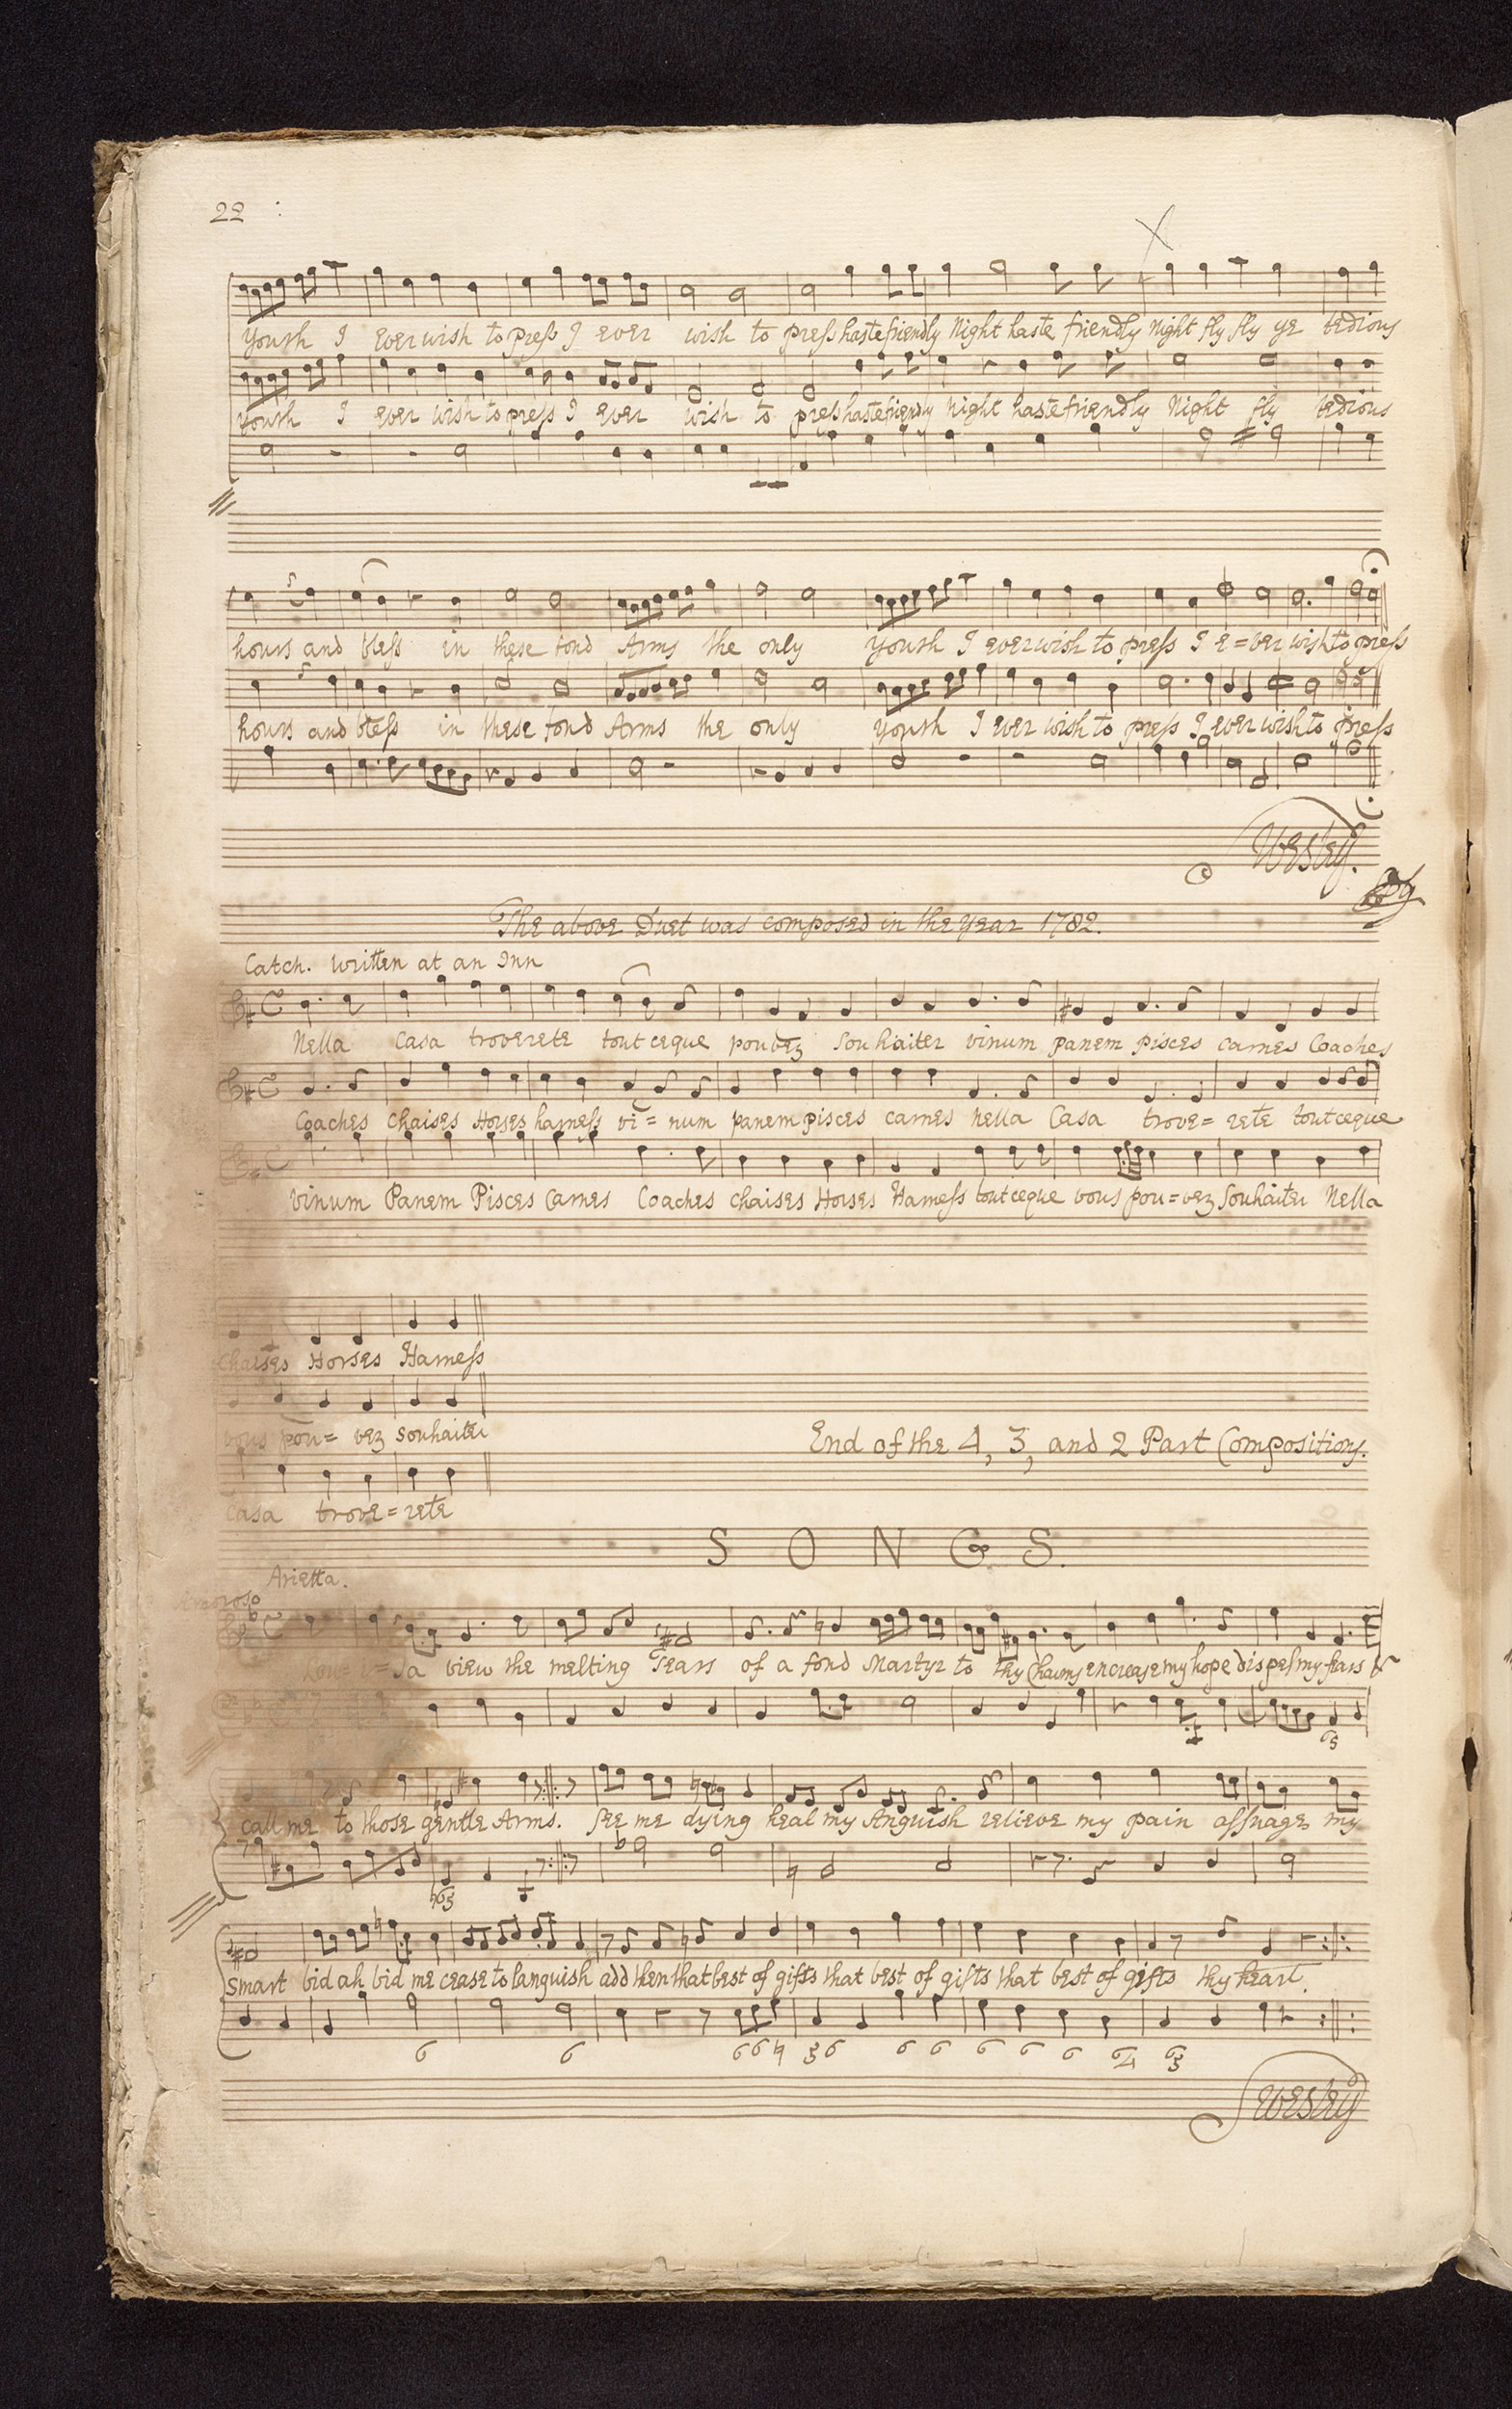 22
Youth I ever wish to press I ever wish to press haste friendly Night haste friendly Night fly fly ye tedious
Youth I ever wish to press I ever wish to press haste friendly Night haste friendly Night fly tedious
hours and bless in these fond Arms the only Youth I ever wish to press I e=ver wish to press
hours and bless in these fond Arms the only Youth I ever wish to press I ever wish to press
Wesley.
The above Duet was composed in the year 1782.
Catch. written at an Inn
Nella Casa troverete tout ceque pouvez Souhaiter vinum panem pisces carnes Coaches
Coaches chaises Horses harness vi=num panem pisces carnes Nella Casa trove=rete tout ceque
vinum Panem Pisces Carnes Coaches chaises Horses Harness tout ceque vous pou=vez Souhaiter Nella
Chaises Horses Harness
vous pou=vez souhaiter
End of the 4, 3, and 2 Part Compositions.
Casa trove=rete
SONGS.
Arietta.
Amoroso
=sa view the melting Tears of a fond Martyr to thy Charms encrease my hope dispel my fears &
65
call me to those gentle Arms. See me dying heal my Anguish relieve my pain assuage my
65
Smart bid ah bid me cease to languish add then that best of gifts that best of gifts that best of gifts thy heart.
6 6 6 6 3 6 6 6 6 6 6 6 4 6 3
S Wesley